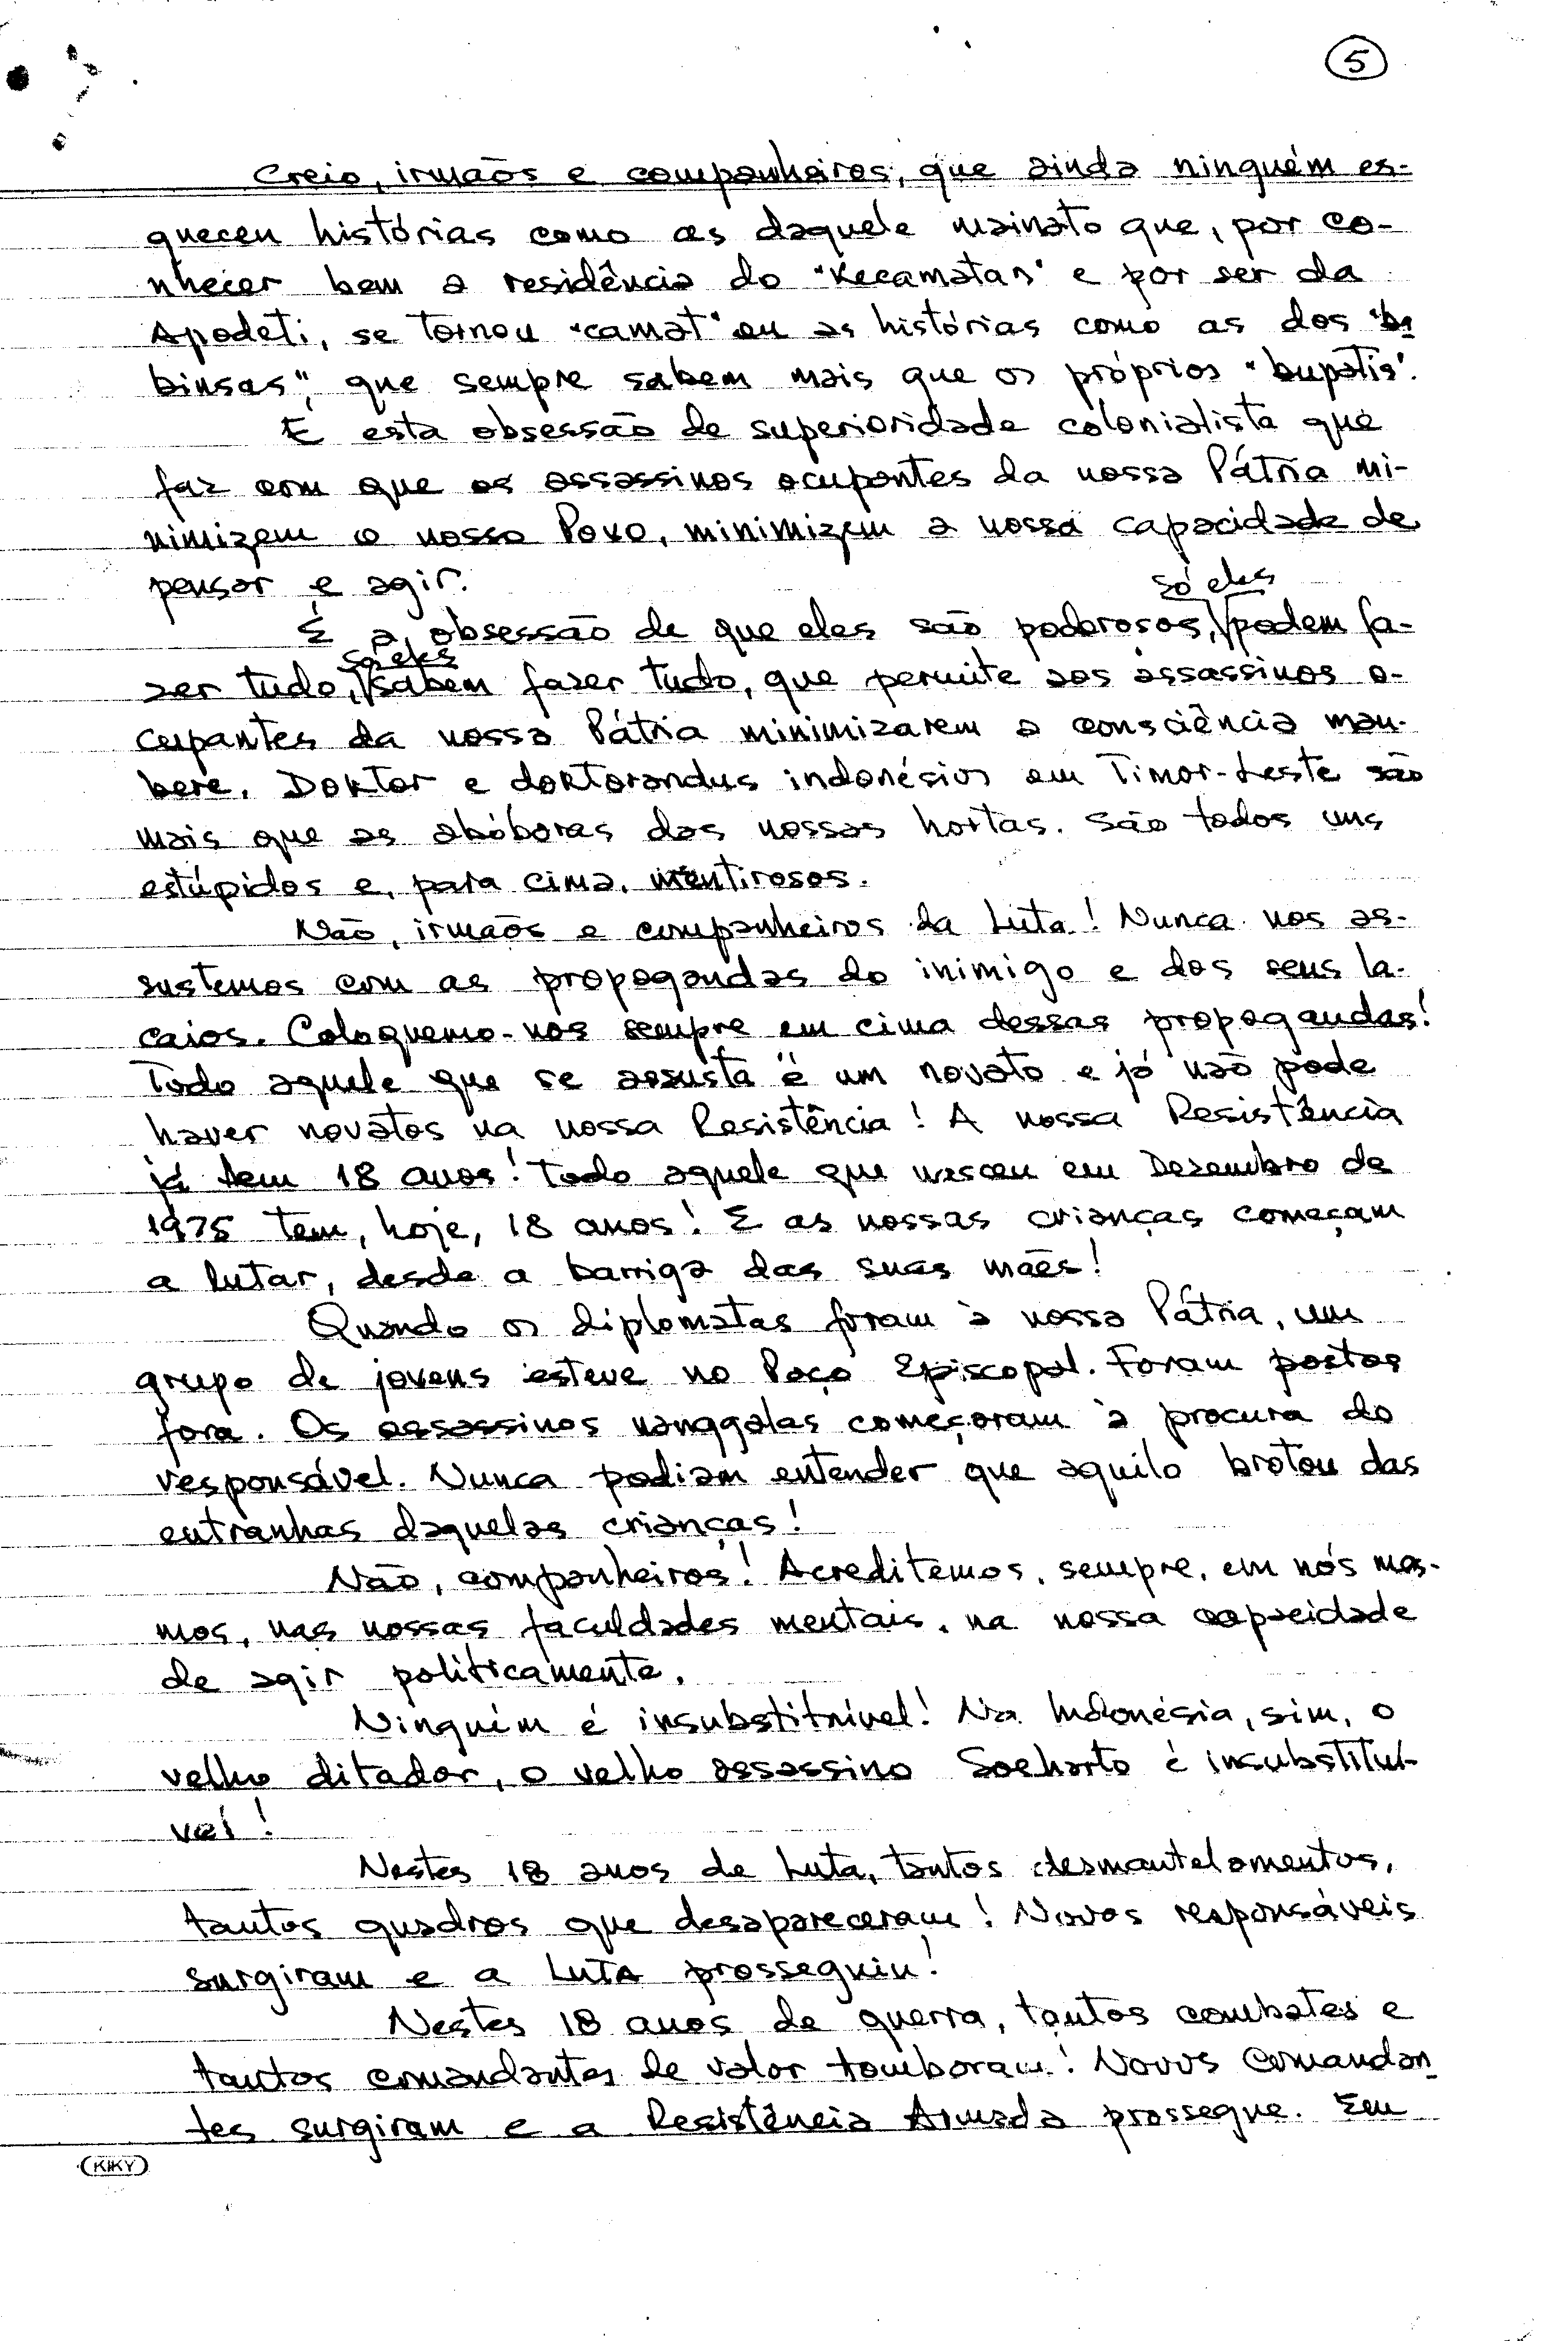 5
Creio, irmãos e companheiros, que ainda ninguém es-
queceu histórias como as daquele mainato que, por co-
nhecer bem a residência do "Kecamatan" e por ser da
Apodeti, se tornou "camat" ou as histórias como as dos "ba
binsas", que sempre sabem mais que os próprios "bupatis".
É esta obsessão de superioridade colonialista que
faz com que os assassinos ocupantes da nossa Pátria mi-
nimizem o nosso Povo, minimizem a nossa capacidade de
pensar e agir.
só eles
É a obsessão de que eles são poderosos, podem fa-
só eles
zer tudo, sabem fazer tudo, que permite aos assassinos o-
cupantes da nossa Pátria minimizarem a consciência mau-
bere. Doktor e doktorandus indonésios em Timor-Leste são
mais que as abóboras das nossas hortas. São todos uns
estúpidos e, para cima, mentirosos.
Não, irmãos e companheiros da Luta! Nunca nos as-
sustemos com as propagandas do inimigo e dos seus la-
caios. Coloquemo-nos sempre em cima dessas propagandas!
Todo aquele que se assusta é um novato e já não pode
haver novatos na nossa Resistência! A nossa Resistência
já tem 18 anos! Todo aquele que nasceu em Dezembro de
1975 tem, hoje, 18 anos! E as nossas crianças começam
a lutar, desde a barriga das suas mães!
Quando os diplomatas foram à nossa Pátria, um
grupo de jovens esteve no Paço Episcopal. Foram postos
fora. Os assassinos nanggalas começaram à procura do
responsável. Nunca podiam entender que aquilo brotou das
entranhas daquelas crianças!
Não, companheiros! Acreditemos, sempre, em nós mes-
mos, nas nossas faculdades mentais, na nossa capacidade
de agir politicamente.
Ninguém é insubstituível! Na Indonésia, sim, o
velho ditador, o velho assassino Soeharto é insubstituí-
vel!
Nestes 18 anos de Luta, tantos desmantelamentos,
tantos quadros que desapareceram! Novos responsáveis
surgiram e a Luta prosseguiu!
Nestes 18 anos de guerra, tantos combates e
tantos comandantes de valor tombaram! Novos Comandan
tes surgiram e a Resistência Armada prossegue. Em
KIKY